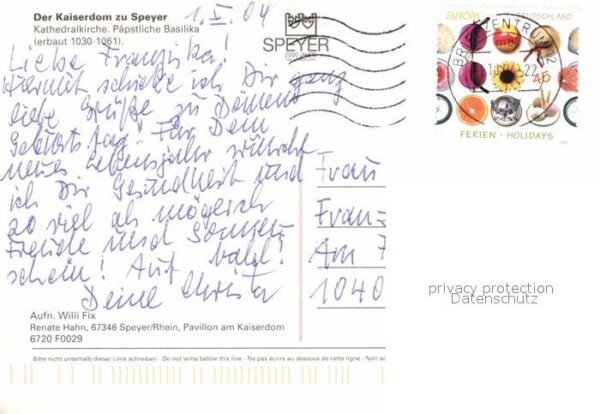 Der Kaiserdom zu Speyer
Kathedralkirche. Päpstliche Basilika
(erbaut 1030-1061).
1. V. 04
Liebe Franziska!
Hiermit schicke ich Dir ganz
liebe Grüße zu Deinem
Geburtstag! Für Dein
neues Lebensjahr wünsche
ich Dir Gesundheit und
so viel als möglich
Freude und Sonnen-
schein! Auf bald!
Deine Christa
Aufn. Willi Fix
Renate Hahn, 67346 Speyer/Rhein, Pavillon am Kaiserdom
6720 F0029
Bitte nicht unterhalb dieser Linie schreiben - Do not write below this line - Ne pas écrire au dessous de cette ligne - Non sc
SPEYER
2000 Jahre
BRIEFZENTRUM
EUROPA DEUTSCHLAND
45
FERIEN · HOLIDAYS
Frau
Franz
Am
1040
privacy protection
Datenschutz